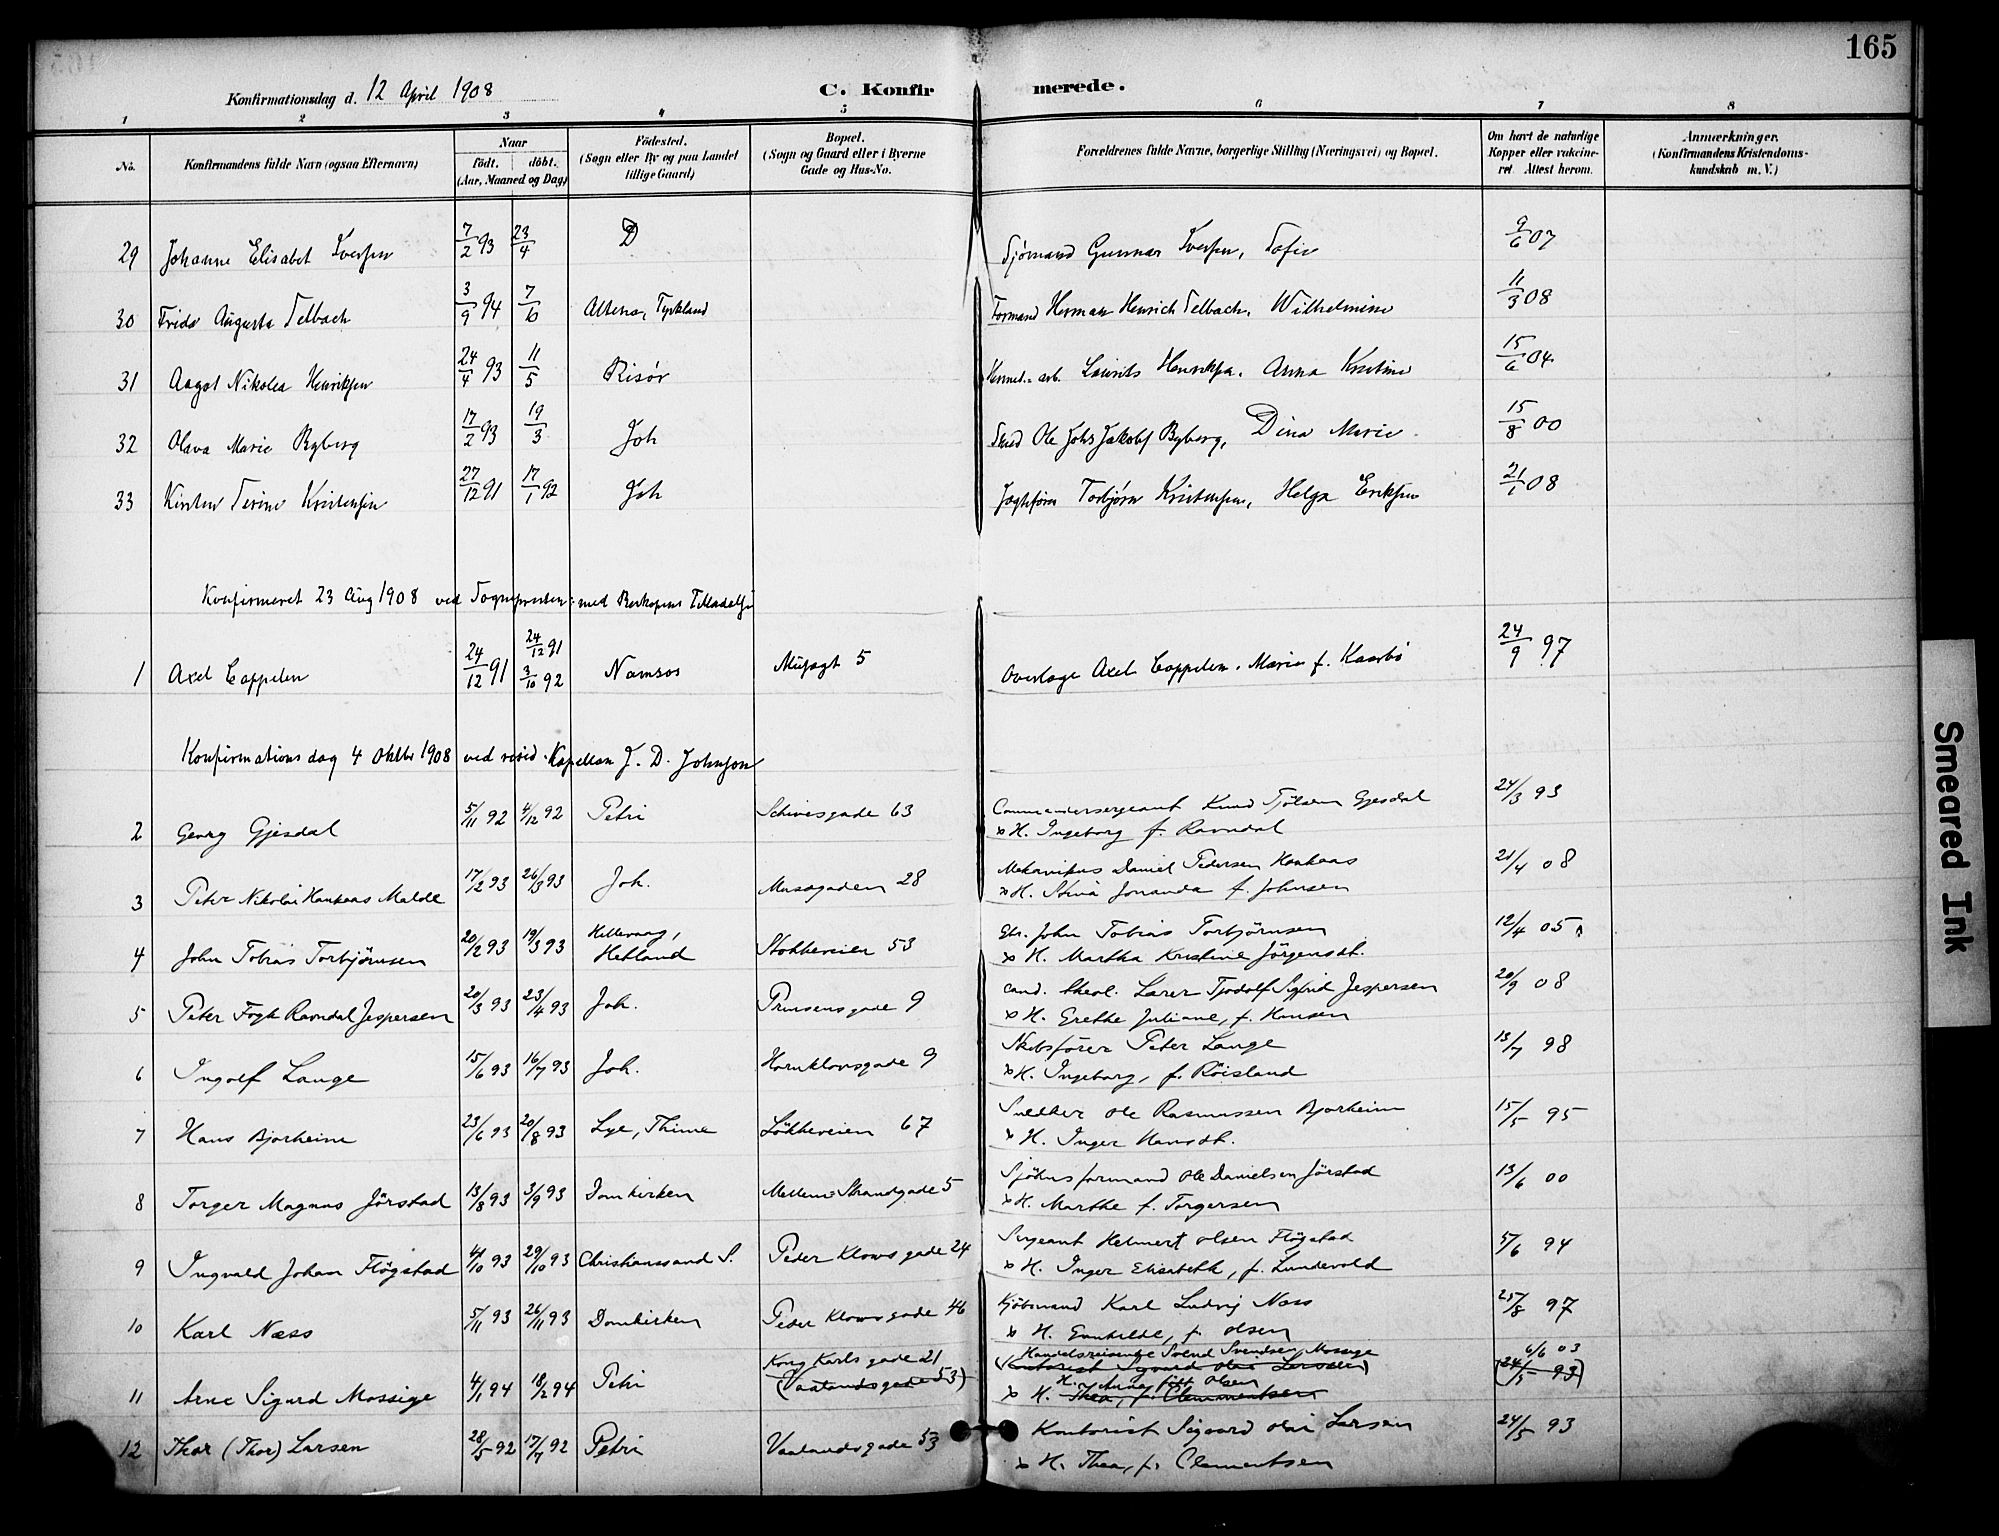 165
Konfirmationsdag d. 12 April 1908
C. Konfirmerede.
1 2 3 4 5 6 7 8
No.
Konfirmandens fulde Navn (ogsaa Efternavn)
Naar
födt. döbt.
(Aar, Maaned og Dag)
Födested.
(Sogn eller By og paa Landet
tillige Gaard)
Bopæl.
(Sogn og Gaard eller i Byerne
Gade og Hus-No.
Forældrenes fulde Navne, borgerlige Stilling (Næringsvei) og Bopæl.
Om havt de naturlige
Kopper eller vakcine-
ret. Attest herom.
Anmærkninger.
(Konfirmandens Kristendoms-
kundskab m. V.)
29 Johanne Elisabet Iversen 7/2 93 23/4 D Sjømand Gunnar Iversen, Sofie 9/6 07
30 Frida Augusta Selbach 3/9 94 7/10 Altena, Tyskland Formand Herman Henrich Selbach, Wilhelmine 11/3 08
31 Aagot Nikolea Henriksen 24/4 93 11/5 Risör Hermet.-arb. Laurits Henriksen. Anna Kristine 15/6 04
32 Olava Marie Byberg 17/2 93 19/3 Joh Ole Johs Jakobs Byberg, Dina Marie 15/8 00
33 Kirsten Serine Kristensen 27/12 91 17/1 92 Joh Jagtefører Torbjørn Kristensen, Helga Eriksen 21/1 08
Konfirmeret 23 Aug 1908 ved Sognepresten med Biskopens Tilladelse
24/12 91
1 Axel Cappelen 24/12 91 3/10 92 Namsos Musegt 5 Overlæge Axel Cappelen. Marie f. Kaarbö 24/9 97
Konfirmationsdag 4 Oktbr 1908 ved resid. Kapellan J. D. Johnson
2 Georg Gjesdal 5/11 92 4/12 92 Petri Schivesgade 63 Commandersergeant Knud Tjölsen Gjesdal 24/3 93
& H. Ingeborg f. Ravndal
3 Peter Nikolai Haukaas Malde 17/2 93 26/3 93 Joh. Musegaden 28 Mekanikus Daniel Pedersen Haukaas 21/4 08
& H. Stina Jonanda f. Johnsen
4 John Tobias Torbjörnsen 20/2 93 19/3 93 Hillevaag, Hetland Stokkeveien 53 John Tobias Torbjörnsen 12/4 05
& H. Martha Kristine Jörgensdt.
5 Peter Fogh Ravndal Jespersen 20/3 93 23/4 93 Joh. Prinsensgade 9 cand. theol. Lærer Tjodolf Sigfrid Jespersen 20/9 08
& H. Grethe Juliane, f. Hansen
6 Ingolf Lange 15/6 93 16/7 93 Joh. Hornklovsgade 9 Skibsförer Peter Lange 13/7 98
& H. Ingeborg, f. Röisland
7 Hans Bjorheim 23/6 93 20/8 93 Lye, Thime Lökkeveien 67 Ole Rasmussen Bjorheim 15/5 95
& H. Inger Hansdt.
8 Torger Magnus Jörstad 13/8 93 3/9 93 Domkirken Mellem Strandgade 5 Sjöhusformand Ole Danielsen Jörstad 13/6 00
& H. Marthe f. Torgersen
9 Ingvald Johan Flögstad 4/10 93 29/10 93 Christianssand S. Peder Klows gade 24 Sergeant Helmert Olsen Flögstad 5/6 94
& H. Inger Elisabeth, f. Lundevold
10 Karl Næss 5/11 93 26/11 93 Domkirken Peder Klows gade 46 Kjöbmand Karl Ludvig Næss 25/8 97
& H. Gunhilde, f. Olsen
Kong Karls gade 21 Handelsreisende Svend Svendsen Mossige 6/6 03
11 Arne Sigurd Mossige 4/1 94 18/2 94 Petri (Vaalandsgade 53) (Kontorist Sigvard Olai Larssen) (24/5 93)
H. Anne född Olsen
& H. Thea, f. Clementsen
12 Thor (Thor) Larsen 28/5 92 17/7 92 Petri Vaalandsgade 53 Kontorist Sigvard Olai Larsen 24/5 93
& H. Thea, f. Clementsen
Smeared Ink